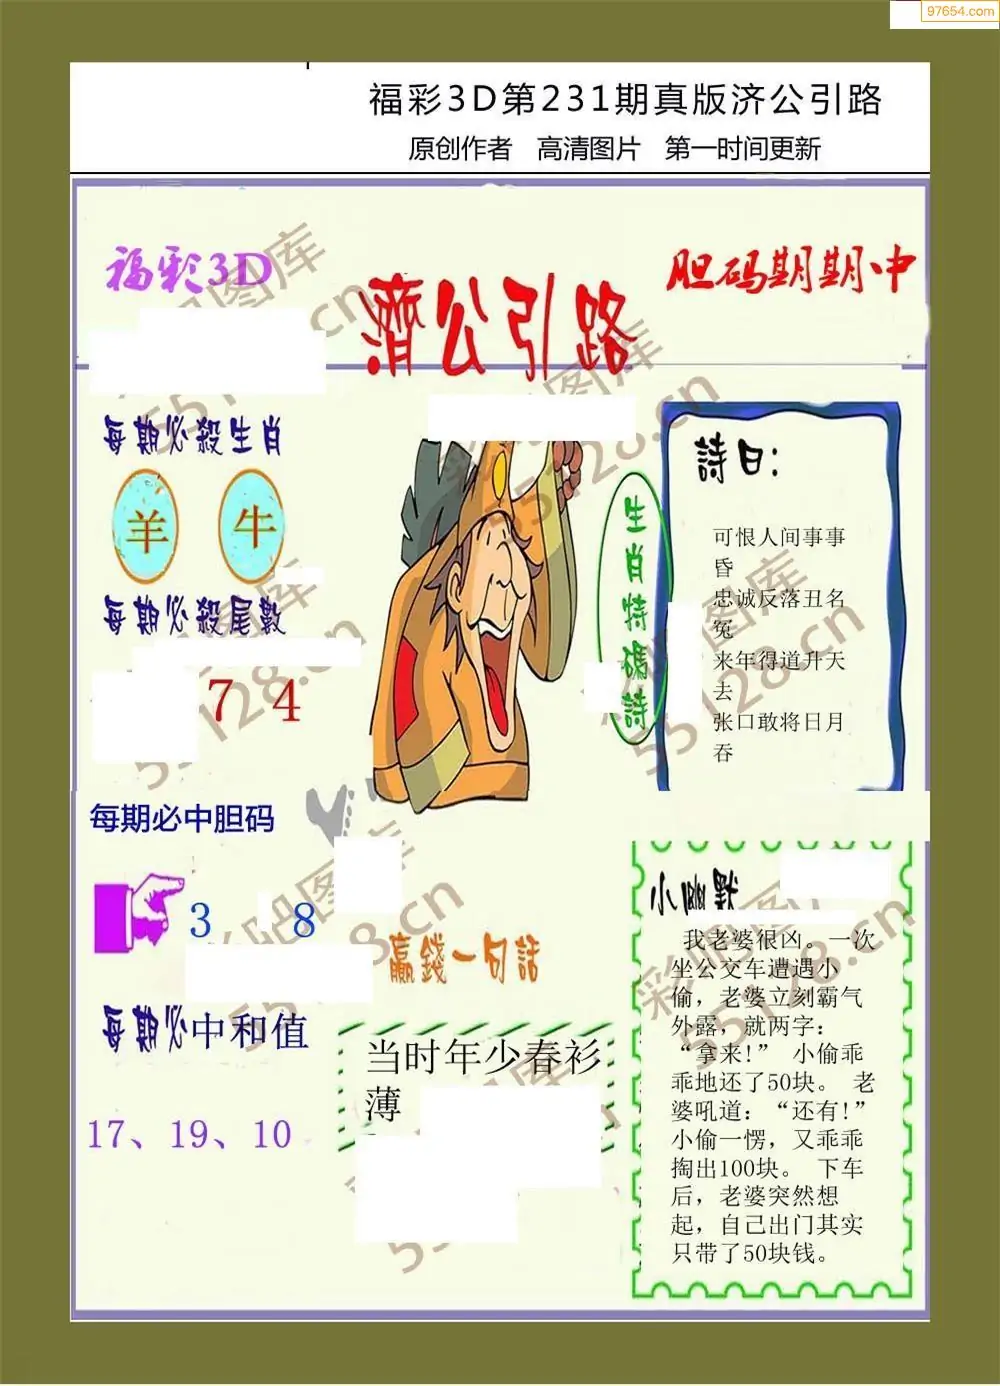 97654.com
福彩3D第231期真版济公引路
原创作者 高清图片 第一时间更新
福彩3D
濟公引路
胆码期期中
每期必殺生肖
羊 牛
每期必殺尾數
7 4
每期必中胆码
3 8
每期必中和值
17、19、10
生肖特碼詩
詩曰:
可恨人间事事
昏
忠诚反落丑名
冤
来年得道升天
去
张口敢将日月
吞
赢錢一句話
当时年少春衫
薄
小幽默
我老婆很凶。一次
坐公交车遭遇小
偷，老婆立刻霸气
外露，就两字：
“拿来!” 小偷乖
乖地还了50块。 老
婆吼道：“还有!”
小偷一愣，又乖乖
掏出100块。 下车
后，老婆突然想
起，自己出门其实
只带了50块钱。
彩吧图库
55128.cn